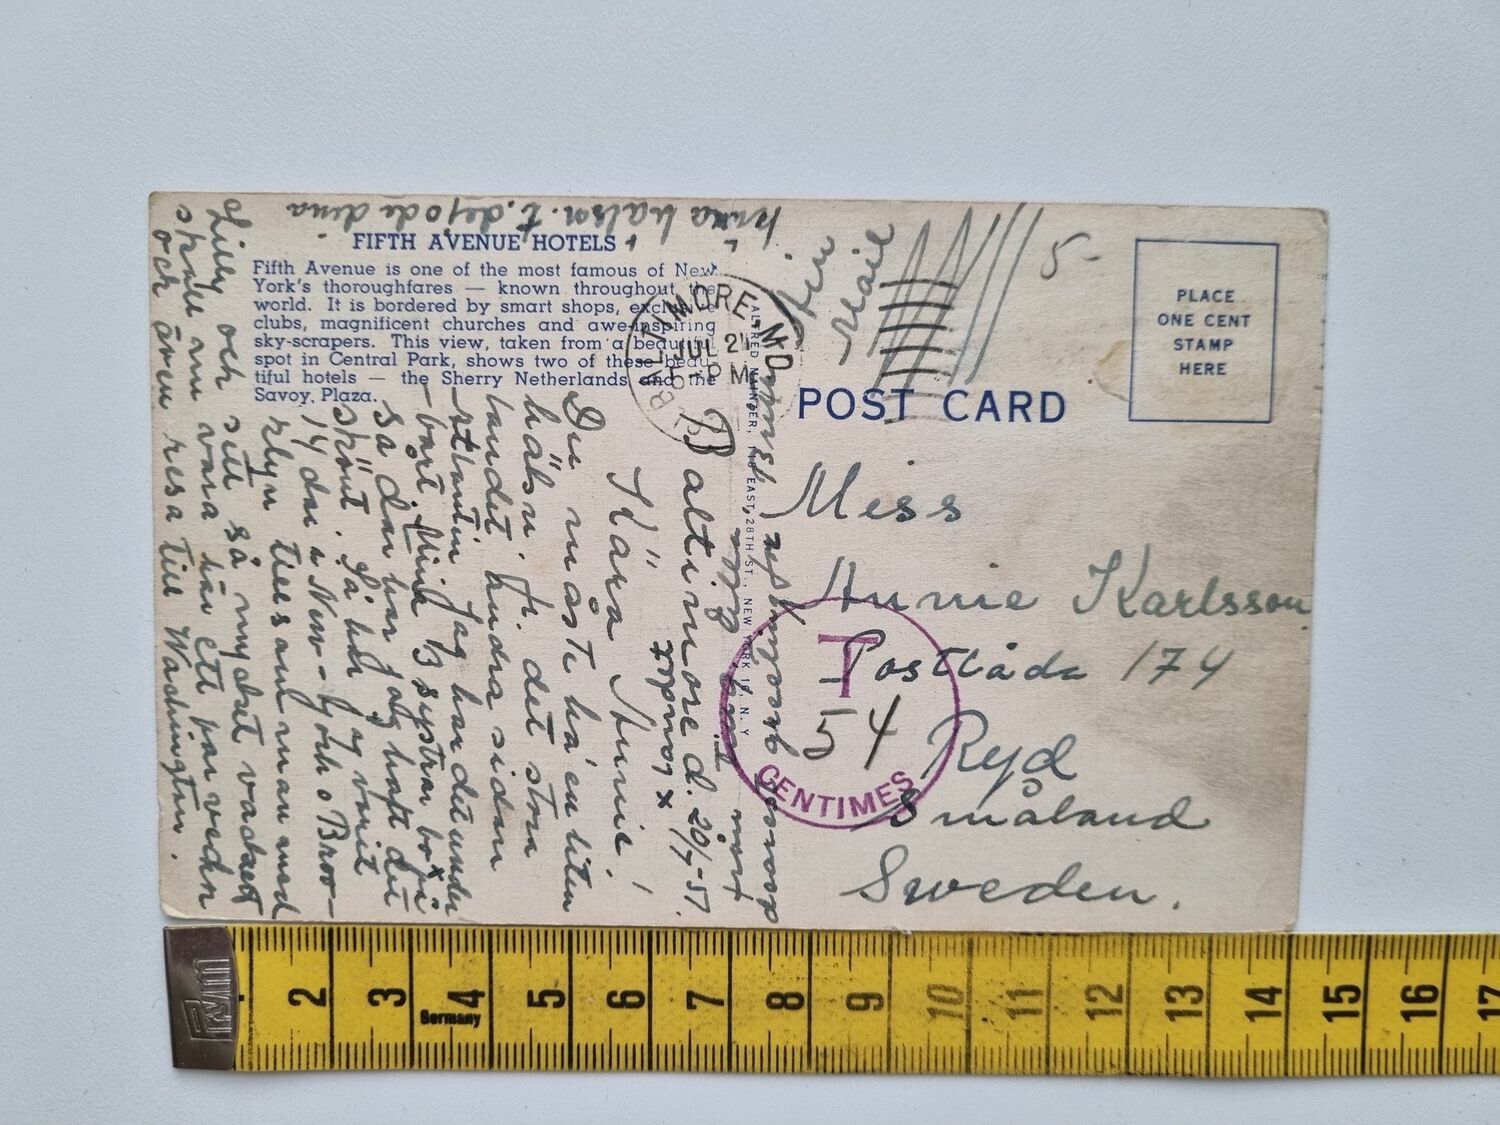 FIFTH AVENUE HOTELS
Fifth Avenue is one of the most famous of New
York's thoroughfares — known throughout the
world. It is bordered by smart shops, exclusive
clubs, magnificent churches and awe-inspiring
sky-scrapers. This view, taken from a beautiful
spot in Central Park, shows two of these beau-
tiful hotels — the Sherry Netherlands and the
Savoy, Plaza.
BALTIMORE, MD.
JUL 21
PM
ALFRED MAINZER, 118 EAST 28TH ST., NEW YORK 16, N. Y.
Baltimore d. 20/7-51.
Kära Annie!
Du måste ha en liten
hälsn. fr. det stora
landet andra sidan
atlanten. Jag har det under-
bart. Mina 3 systrar
så där har jag haft det
skönt. Så har jag varit
14 dar i New-York o Broo-
klyn tillsammans med
Lilly och sett så mycket vackert
skall nu vara här ett par veckor
och även resa till Washington.
Air
Mail
5-
PLACE
ONE CENT
STAMP
HERE
POST CARD
Miss
Annie Karlsson
Postlåda 174
Ryd
Småland
Sweden.
T
54
CENTIMES
2 3 4 5 6 7 8 9 10 11 12 13 14 15 16 17
Germany